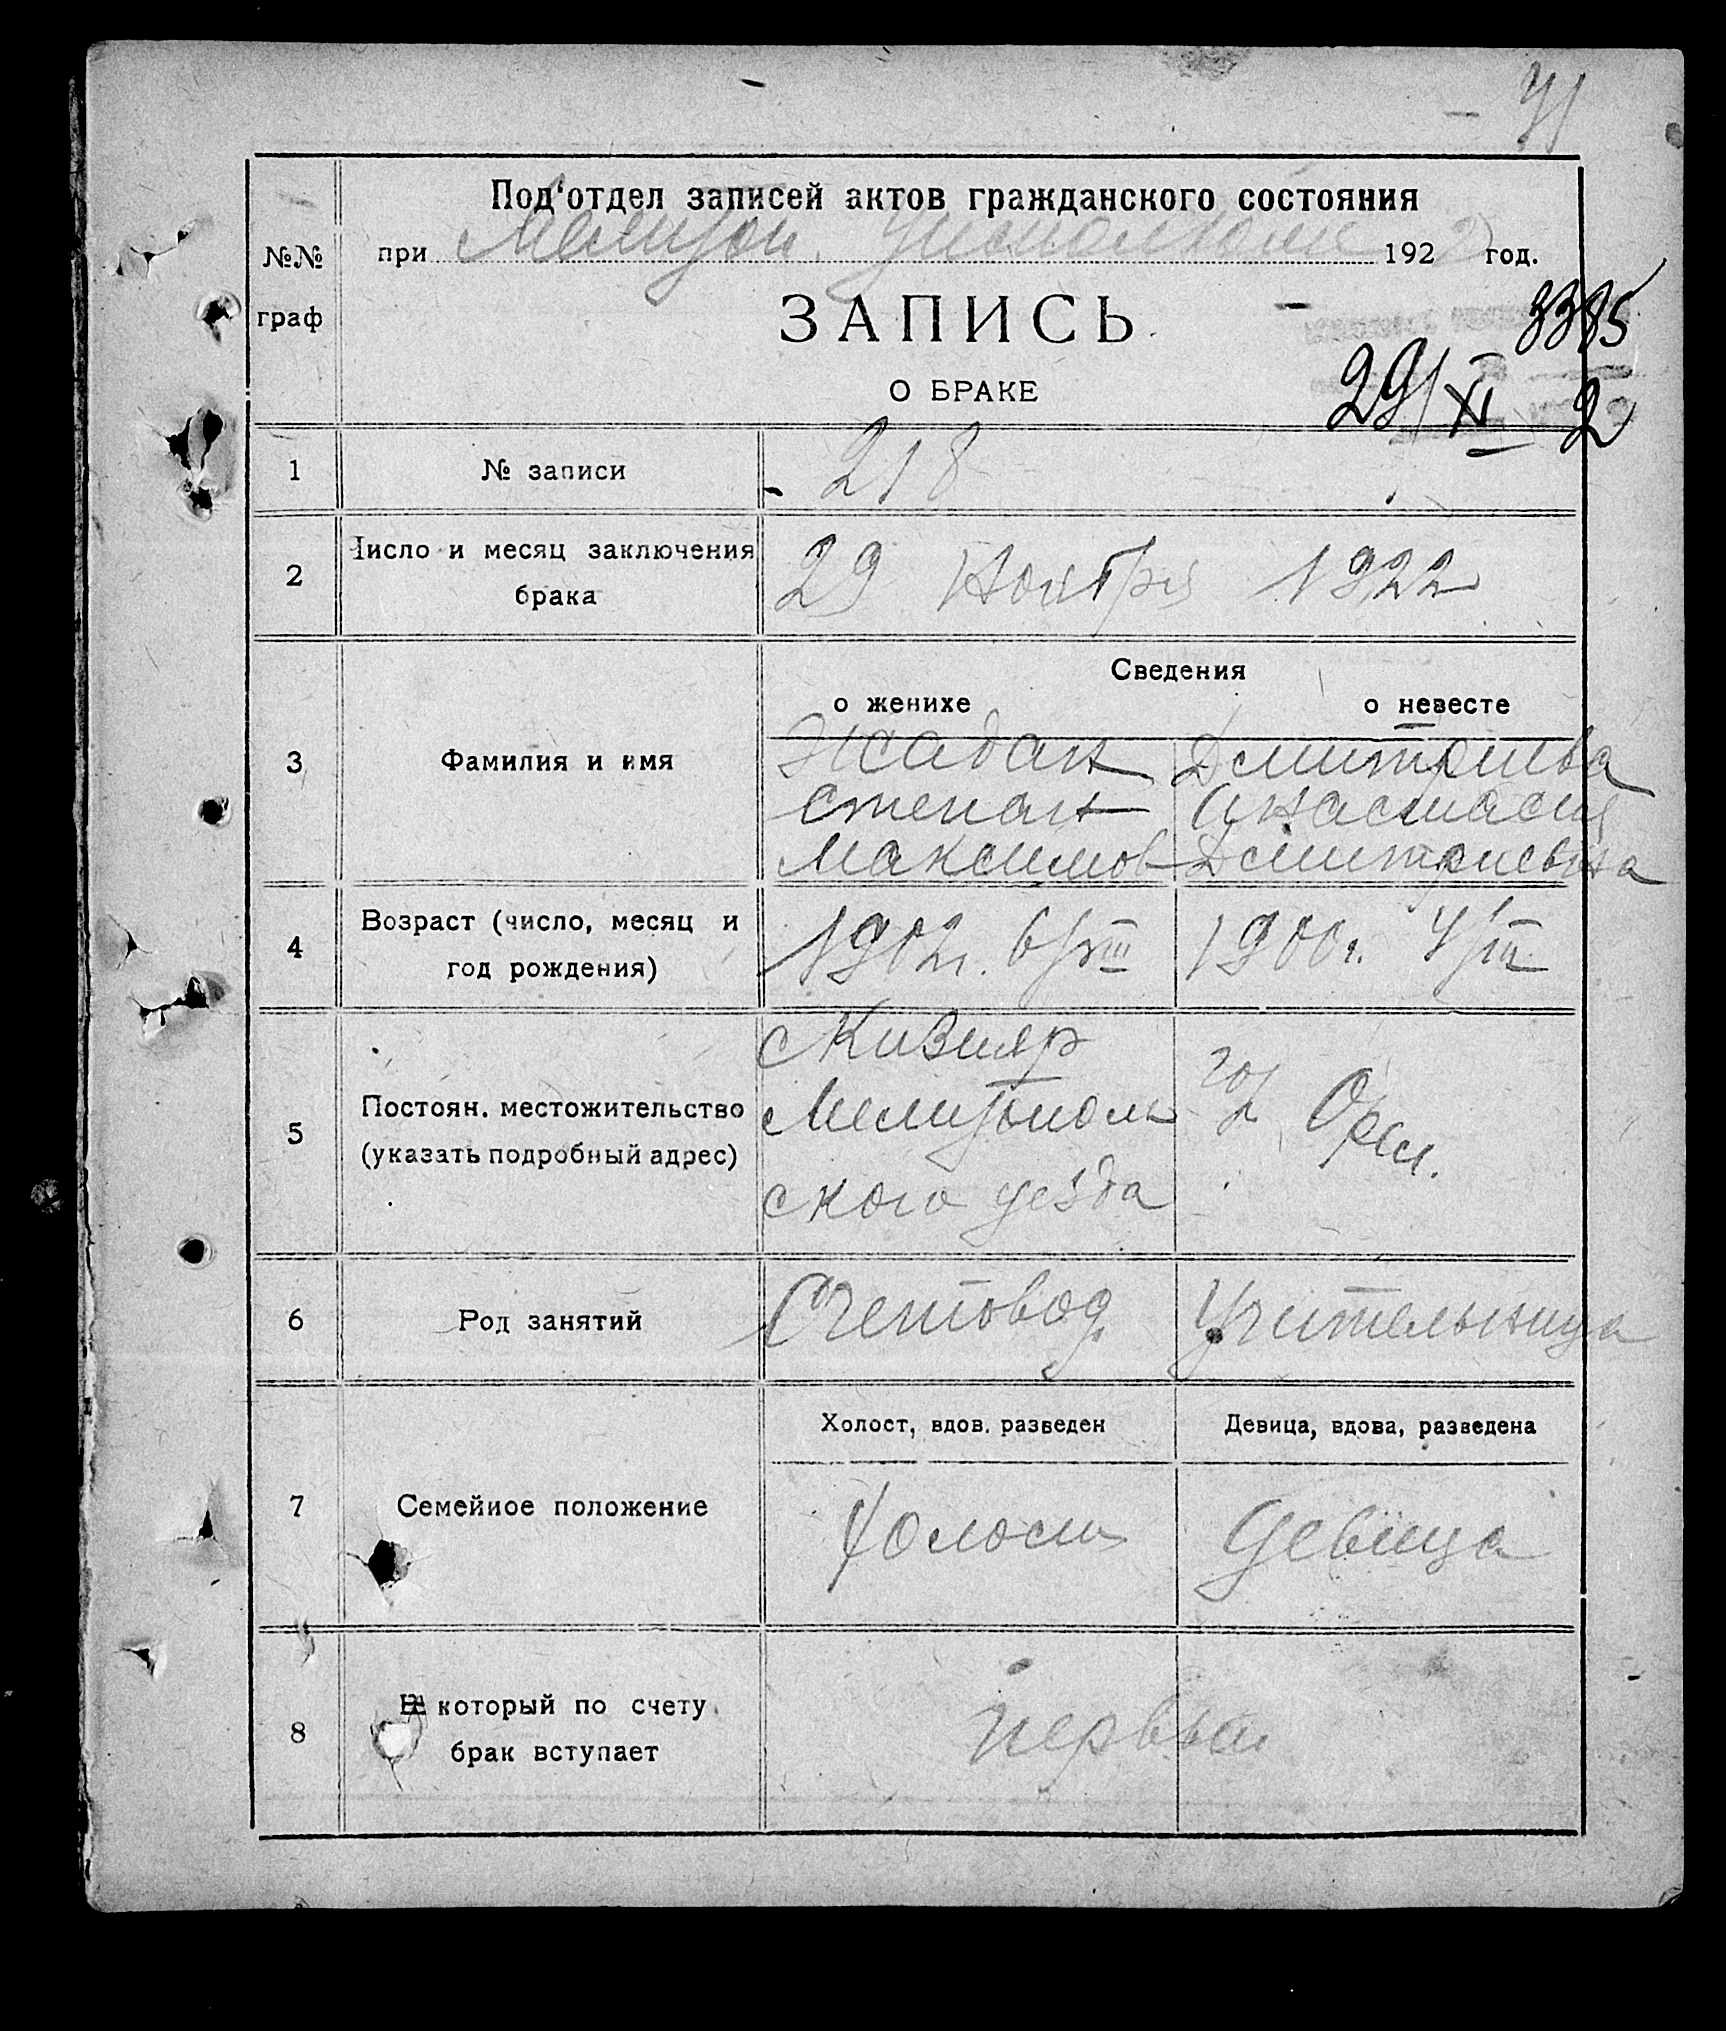 71
Под'отдел записей актов гражданского состояния
№№ граф
при Мелитоп. Уисполкоме 1922 год.
ЗАПИСЬ
3385
О БРАКЕ
29/XI 2
1 № записи 218
2 Число и месяц заключения брака 29 Ноября 1922
Сведения
о женихе о невесте
3 Фамилия и имя
Жадан Дмитриева
Степан Анастасия
Максимов Дмитриевна
4 Возраст (число, месяц и год рождения) 1902г. 6/VIII 1900г. 4/III
5 Постоян. местожительство (указать подробный адрес)
с Кизияр
Мелитополь гор
ского уезда Орел.
6 Род занятий Счетовод Учительница
Холост, вдов. разведен Девица, вдова, разведена
7 Семейное положение Холост Девица
8 В который по счету брак вступает первый